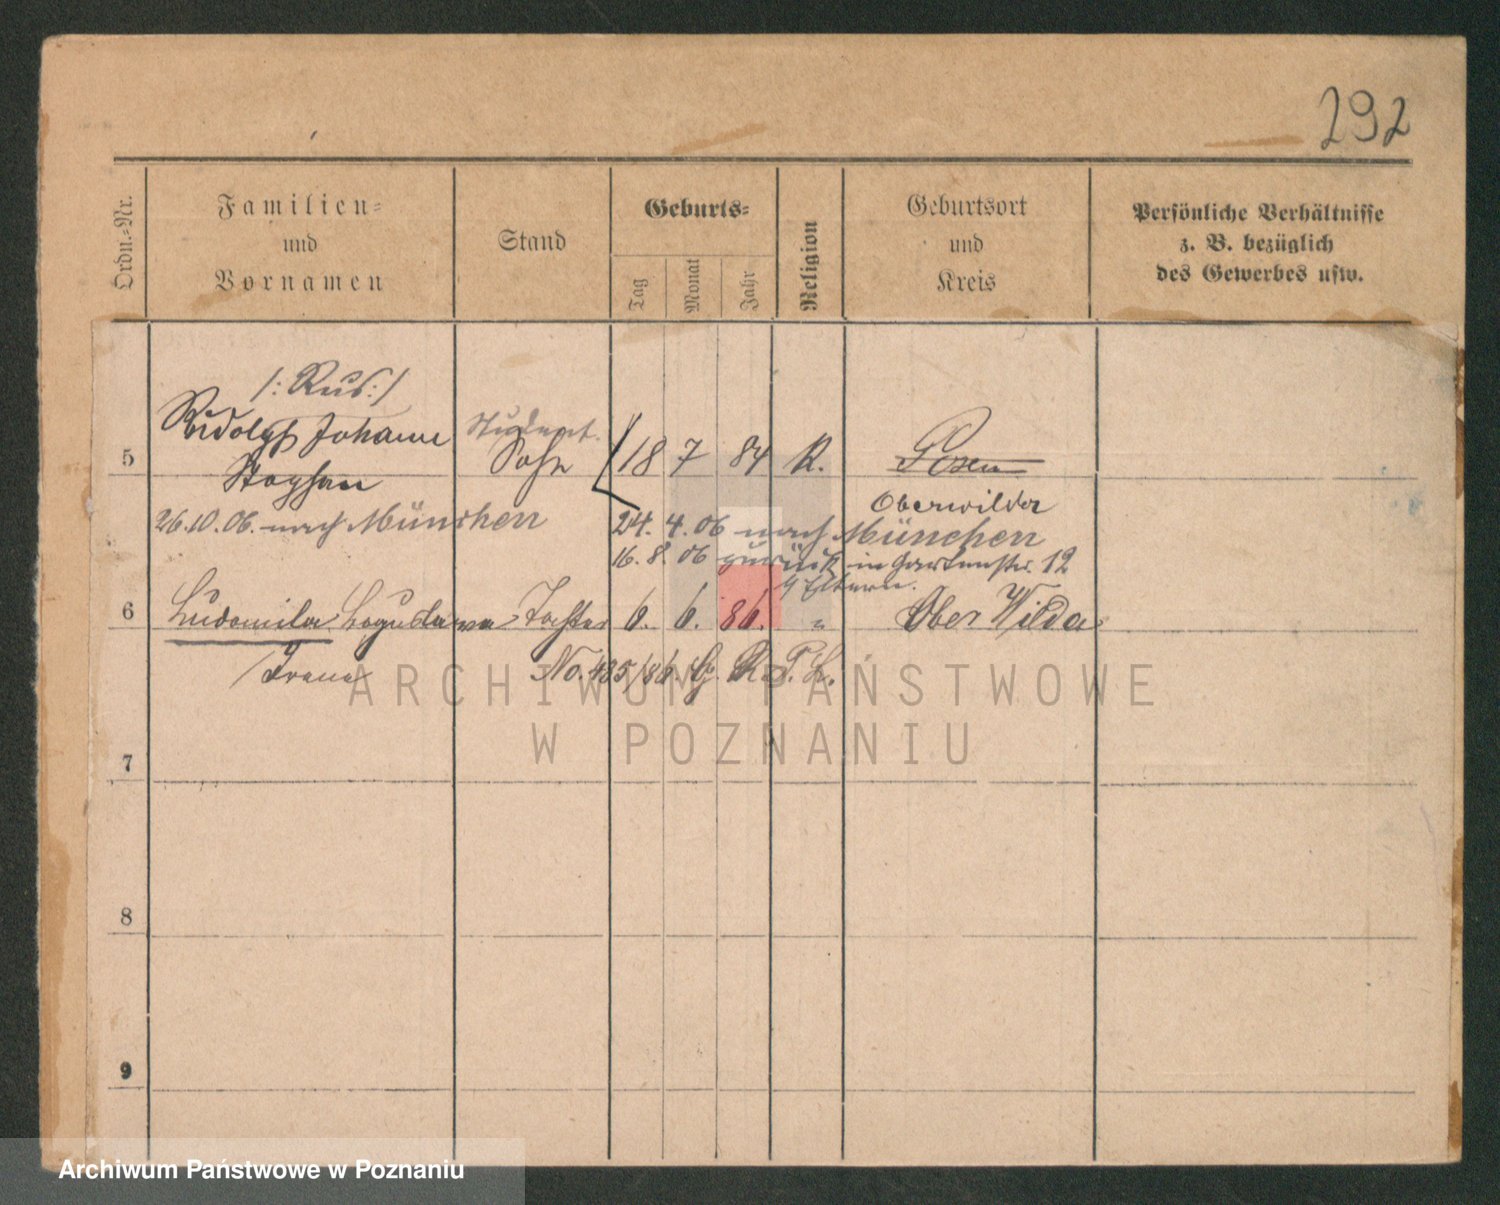 292
Ordn.-Nr.
Familien-
und
Vornamen
Stand
Geburts-
Tag
Monat
Jahr
Religion
Geburtsort
und
Kreis
Persönliche Verhältnisse
z. B. bezüglich
des Gewerbes usw.
/: Ruf: /
5 Rudolf Johann Student. Sohn 18 7 84 K. Posen
Stephan
Oberwilda
26.10.06. nach München
24. 4. 06 nach München
16. 8. 06 zurück in Gartenstr. 12
Eltern.
6 Ludomila Boguslawa Tochter 6. 6. 86. " Ober Wilda
/Irene No. 485/86.
ARCHIWUM PAŃSTWOWE
W POZNANIU
7
8
9
Archiwum Państwowe w Poznaniu